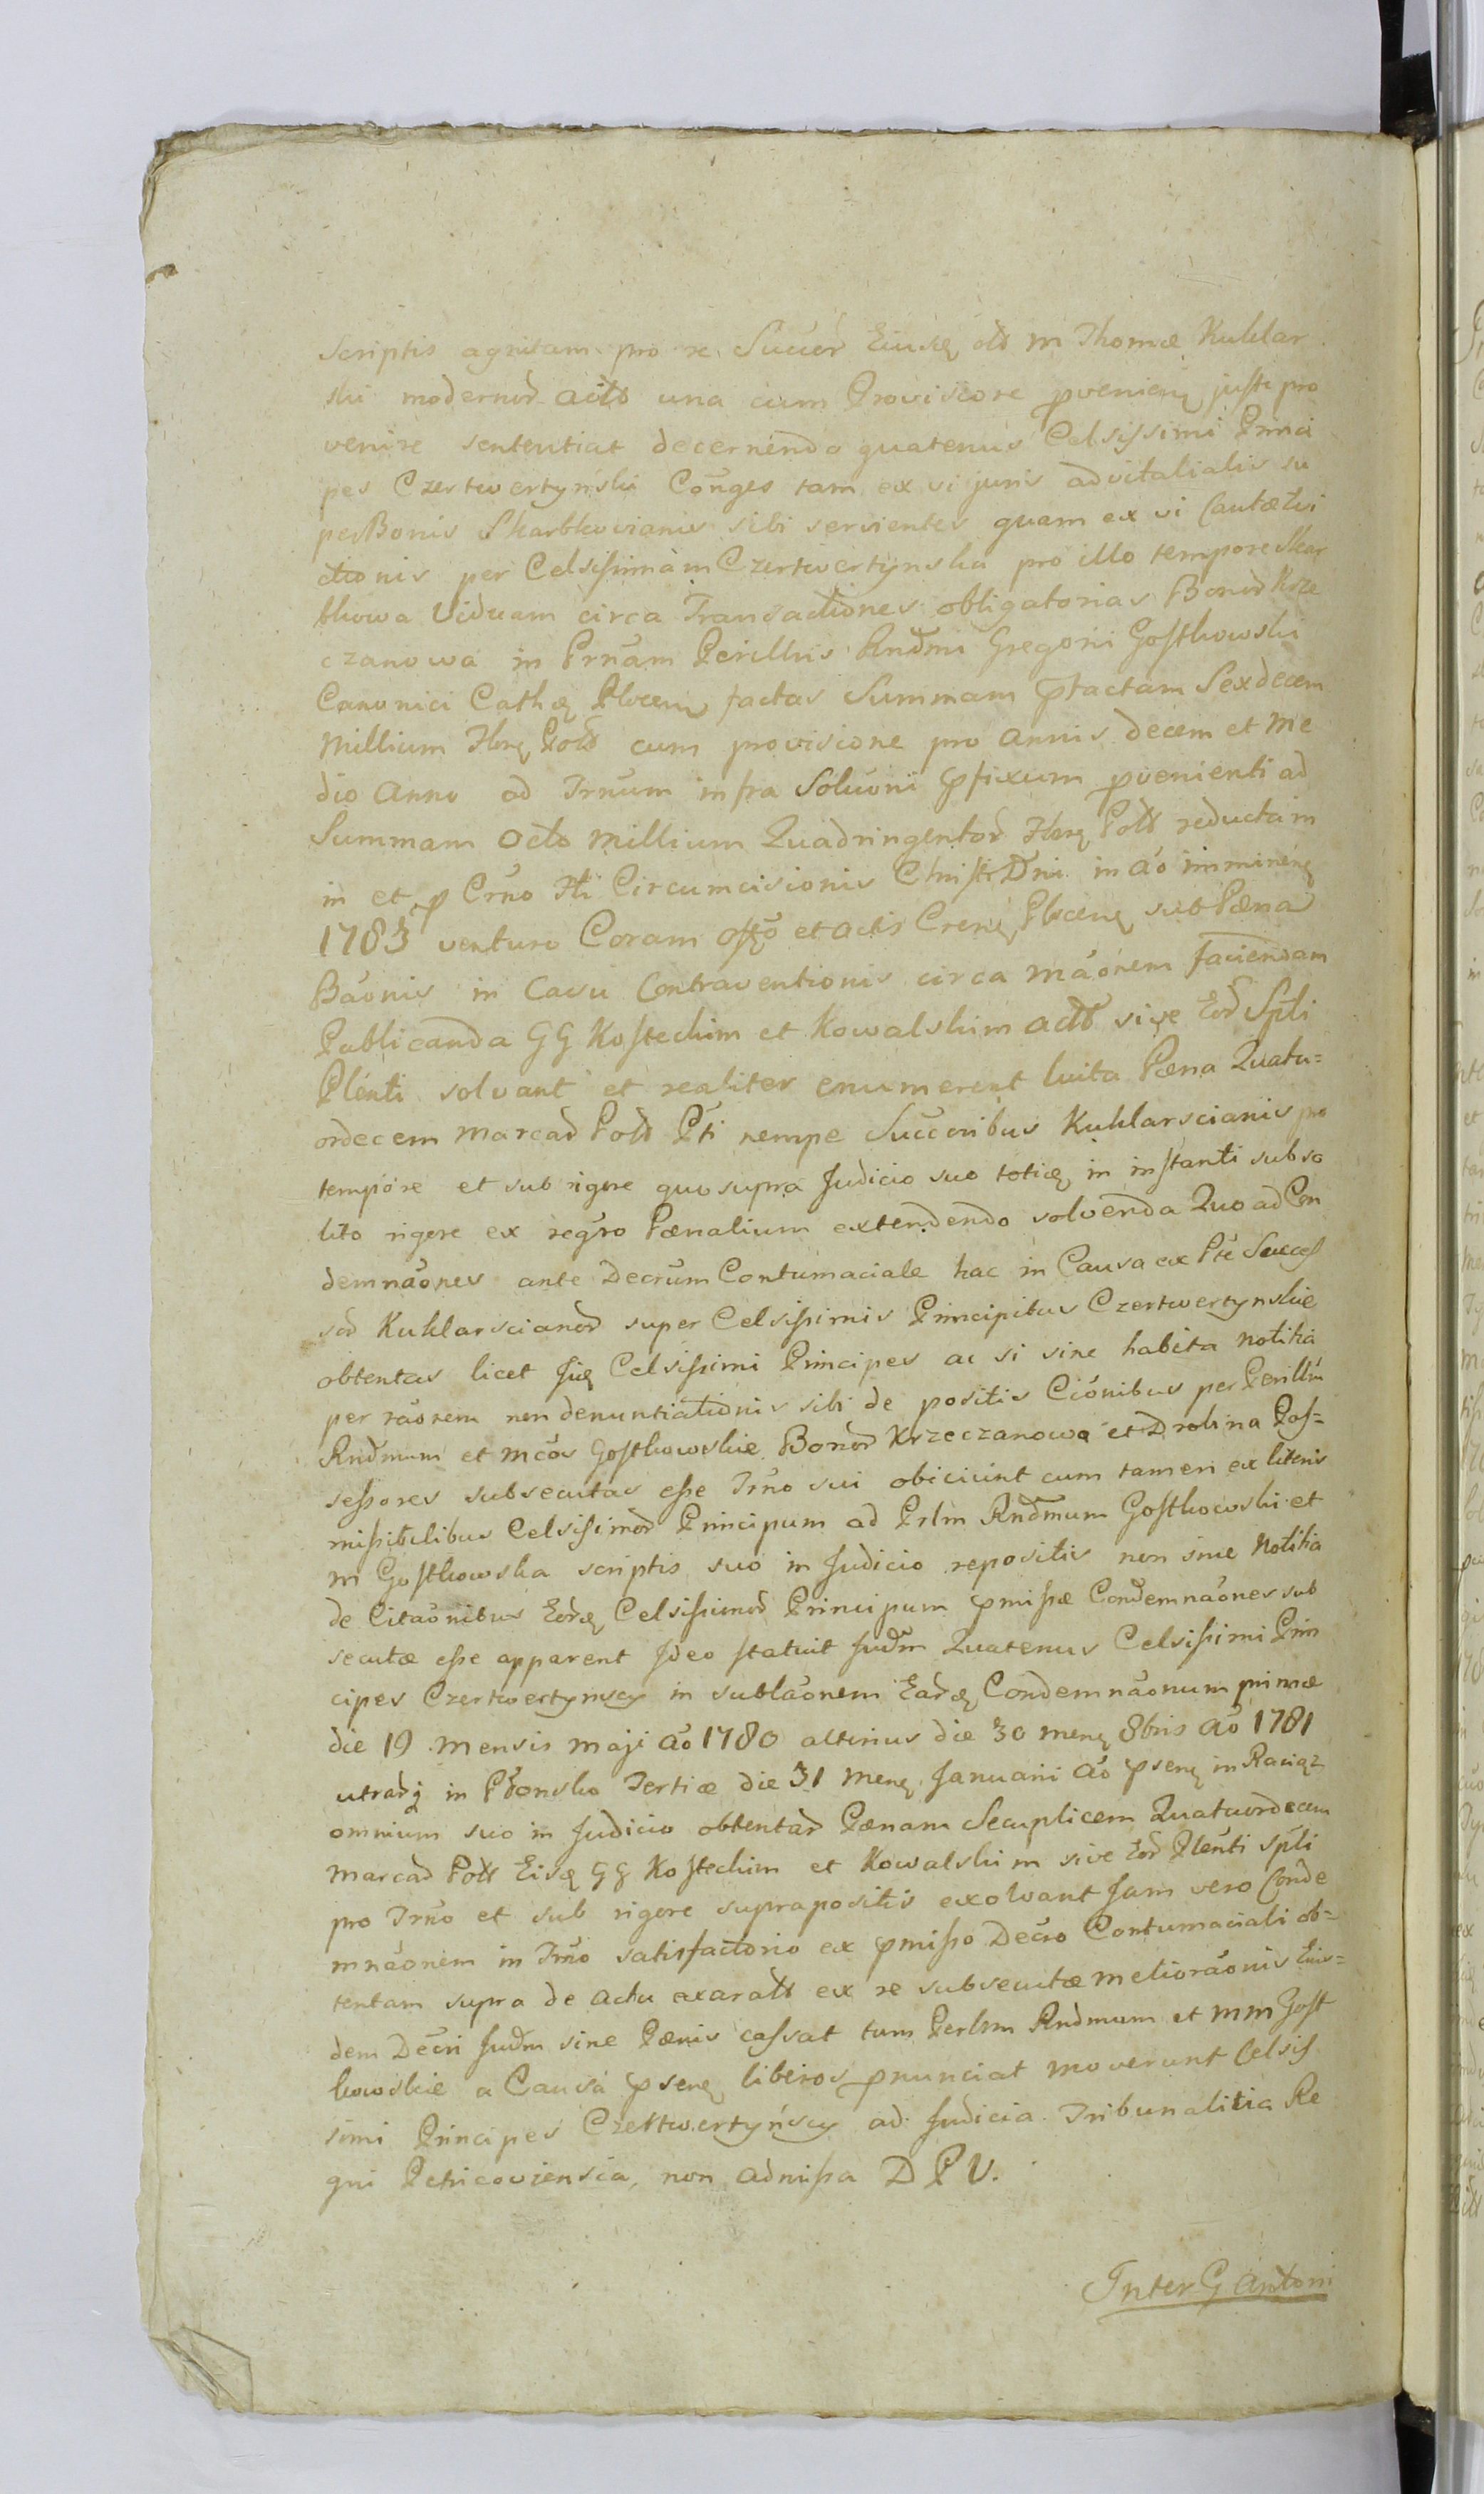 scriptis agnitam pro re Succor Eiusq olt M Thomæ Kuklar
ski modernor actt una cum Provisione pvenienq juste pro
venire sententiat decernendo quatenus Celsissimi Princi
pes Czertwertyński Cónges tam ex vi juris advitalialis su
per Bonis Skarbkovianis sibi servientes quam ex vi
ctionis per Celsissimam Czertwertynska pro illo tempore Skar
bkowa Viduam circa Transactiones obligatorias Bonor Krze
czanowa in Prnam Perillris Rndmi Gregorii Gostkowski
Canonici Cathq Plocenq factas Summam ptactam Sexdecem
Millium Florq Poltt cum provisione pro annis decem et me
dio anno ad Trnum infra Soluoni pfixum pvenienti ad
Summam Octo Millium Quadringentor Florq Poltt reductam
in et p Crno Fti Circumcisionis Christi Dni in ao imminenq
1783 venturo Coram offo et actis Crenq Plocenq sub Pæna
Báonis in Casu Contraventionis circa máonem faciendam
Publicanda GG Kosteckim et Kowalskim actt sive Eor Spli
Plenti solvant et realiter enumerent luita Pæna Quatu=
ordecem Marcar Poltt Pti nempe Succoribus Kuklarscianis pro
tempore et sub rigore quo supra Judicio suo totiq in instanti sub so
lito rigore ex regro Pænalium extendendo solvenda Quo ad Con
demnáones ante Decrum Contumaciale hac in Causa ex Pte Succes
sor Kuklarscianor super Celsissimis Principibus Czertwertynskie
obtentas licet Jiq Celsissimi Principes ac si sine habita notitia
per ráonem non denuntiationis sibi de positis Ciónibus per Perillm
Rndmum et Mcos Gostkowskie Bonor Krzeczanowa et Drobina Pos=
sessores subsecutas esse Trno sui obiciunt cum tamen ex literis
missibilibus Celsissimor Principum ad Prlm Rndmum Gostkowski et
M Gostkowska scriptis suo in Judicio repositis non sine Notitia
de Citaónibus Eorq Celsissimor Principum pmissæ Condemnáones sub
secutæ esse apparent Ideo statuit Judm Quatenus Celsissimi Prin
cipes Czertwertynscy in subláonem Earq Condemnáonum primæ
die 19 Mensis Maji ao 1780 alterius die 30 Menq 8bris ao 1781
utrarq in Płonsko Tertiæ die 31 Menq Januarii ao psenq in Raciąz
omnium suo in Judicio obtentar Pænam Secuplicem Quatuordecem
Marcar Poltt Eisq GG Kosteckim et Kowalskim sive Eor Plenti Spli
pro Trno et sub rigore suprapositis exolvant Jam vero Conde
mnáonem in Trno satisfactorio ex pmisso Decro Contumaciali ob=
tentam supra de actu exaratt ex re subsecutæ Melioráonis Eius=
dem Decri Judm sine Pænis cassat tum Perlrm Rndmum et MM Gost
kowskie a Causa psenq liberos pnunciat Moverunt Celsis
simi Principes Czertwertyńscy ad Judicia Tribunalitia Re
gni Petricoviensia, non admissa D P V.
Inter G Antoni